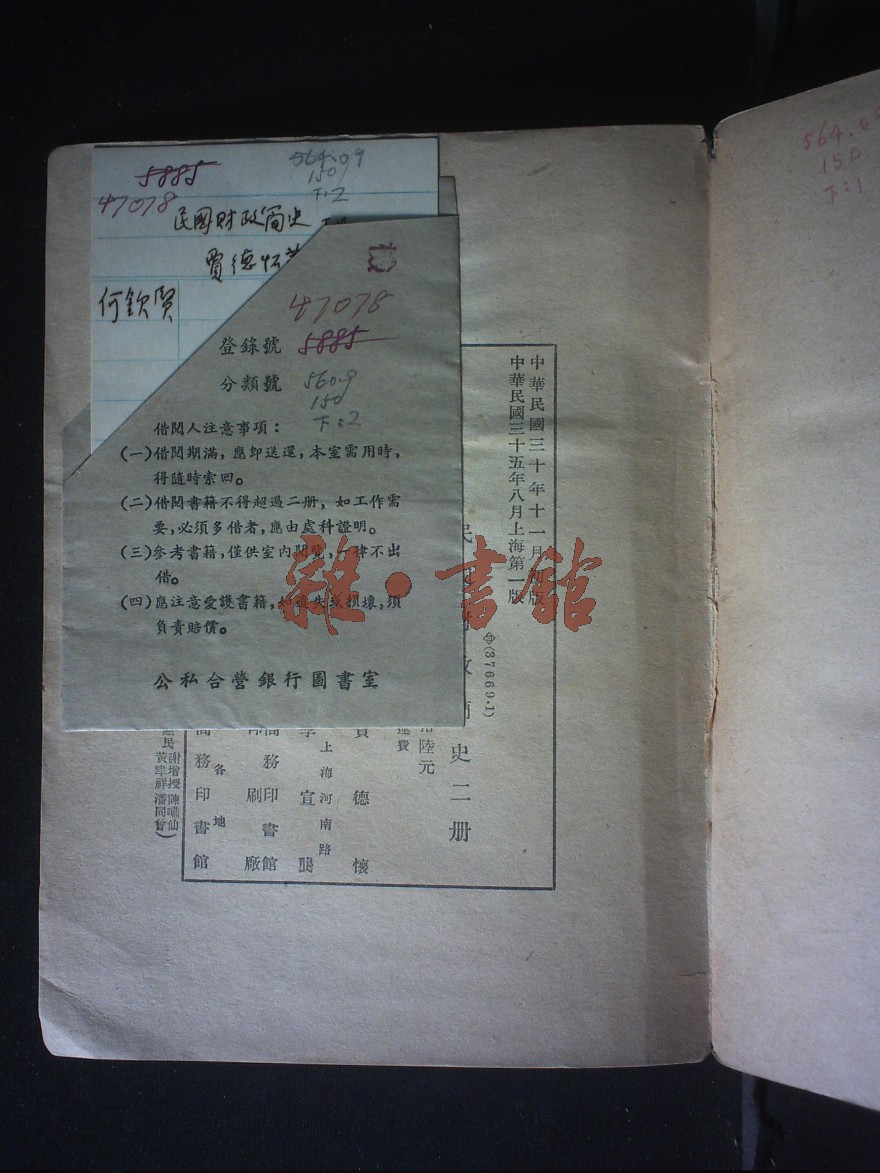 5885
47078
564.09
150
下:2
民國财政简史
賈德怀
何欽賢
47078
登錄號 5885
分類號 560.9
150
下:2
借閱人注意事項:
(一)借閱期滿,應卽送還,本室需用時,
得隨時索回。
(二)借閱書籍不得超過二册,如工作需
要,必須多借者,應由處科證明。
(三)參考書籍,僅供室內閱覽,一律不出
借。
(四)應注意愛護書籍,如遺失或損壞,須
負責賠償。
公私合營銀行圖書室
雜·書館
564.0
150
下:1
中華民國三十年十一月初版
中華民國三十五年八月上海第一版
(37669.1)
民 政簡史二册
陸元
運費
賈德懷
上海河南路
李宣龔
商務印書館
印刷廠
各地
商務印書館
謝增授 陳嘯仙
民 黃聿祥 潘同曾)